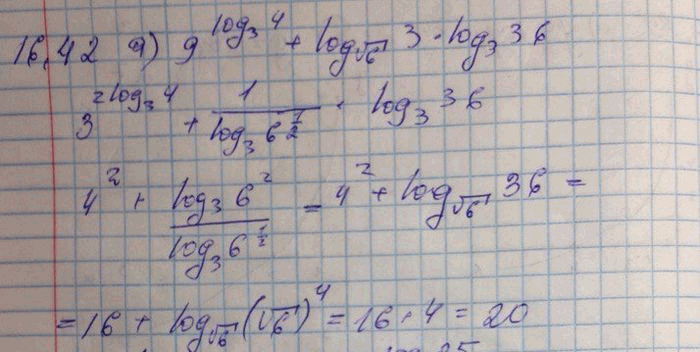 16.42 а) 9^{log₃ 4} + log_{√6} 3 · log₃ 36
3^{2log₃ 4} + \frac{1}{log₃ 6^{\frac{1}{2}}} · log₃ 36
4² + \frac{log₃ 6²}{log₃ 6^{\frac{1}{2}}} = 4² + log_{√6} 36 =
= 16 + log_{√6} (√6)⁴ = 16 + 4 = 20